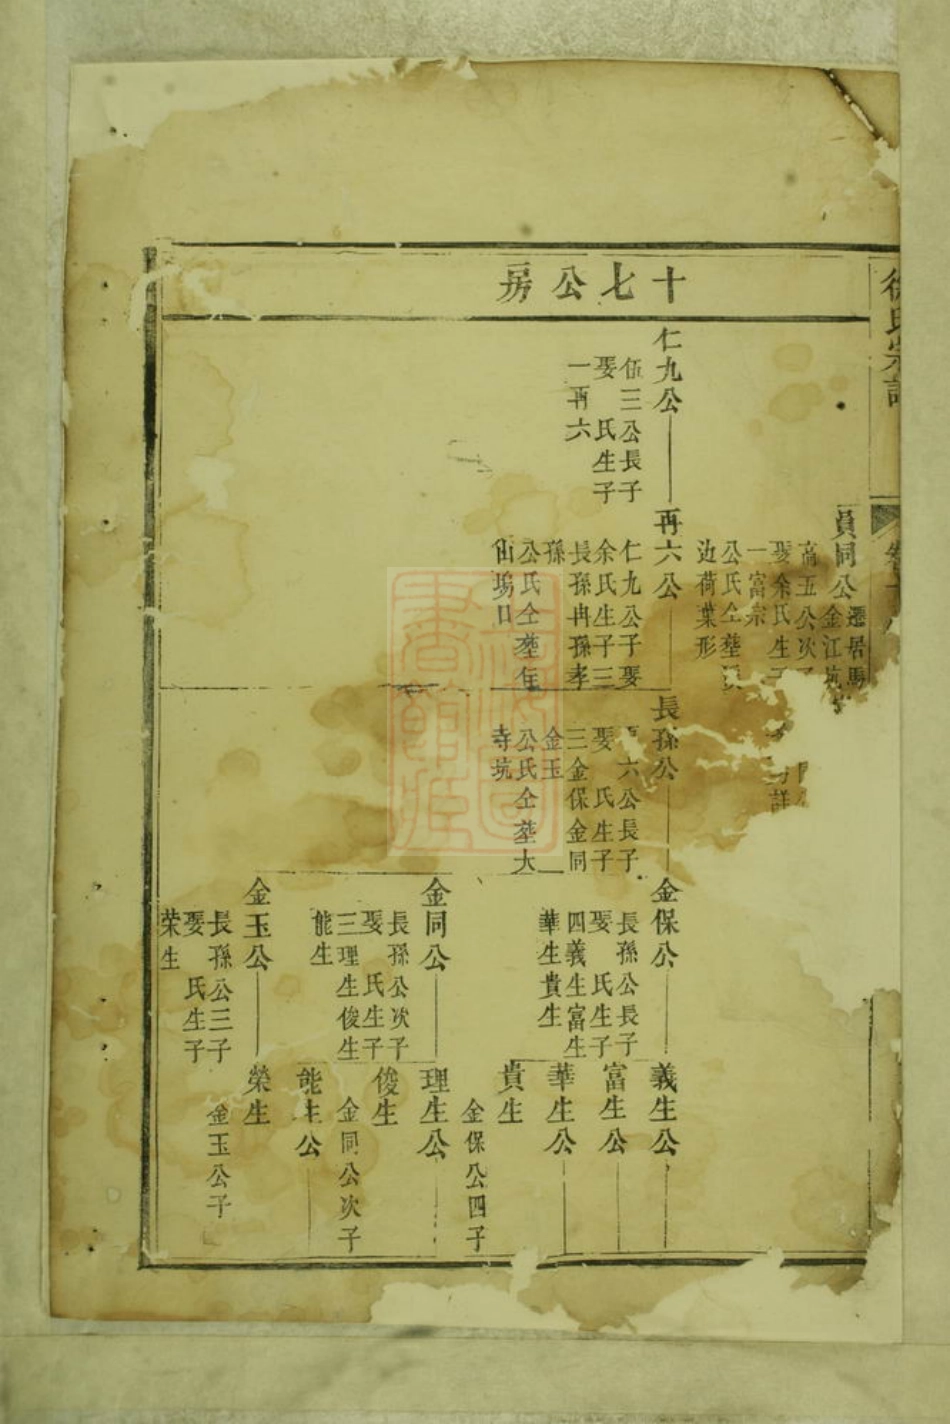 徐氏宗譜
十七公房
員同公
遷居馬
金江坑
高五公次
娶余氏生子
一富宗
公氏仝塟
边荷葉形
仁九公
伍三公長子
娶　氏生子
一再六
再六公
仁九公子娶
余氏生子三
長孫冉孫孝
孫
公氏仝塟住
山塢口
長孫公
六公長子
娶　氏生子
三金保金同
金玉
公氏仝塟大
寺坑
金保公
長孫公長子
娶　氏生子
四義生富生
華生貴生
金同公
長孫公次子
娶　氏生子
三理生俊生
能生
金玉公
長孫公三子
娶　氏生子
荣生
義生公
富生公
華生公
貴生
金保公四子
理生公
俊生
金同公次子
能生公
榮生
金玉公子